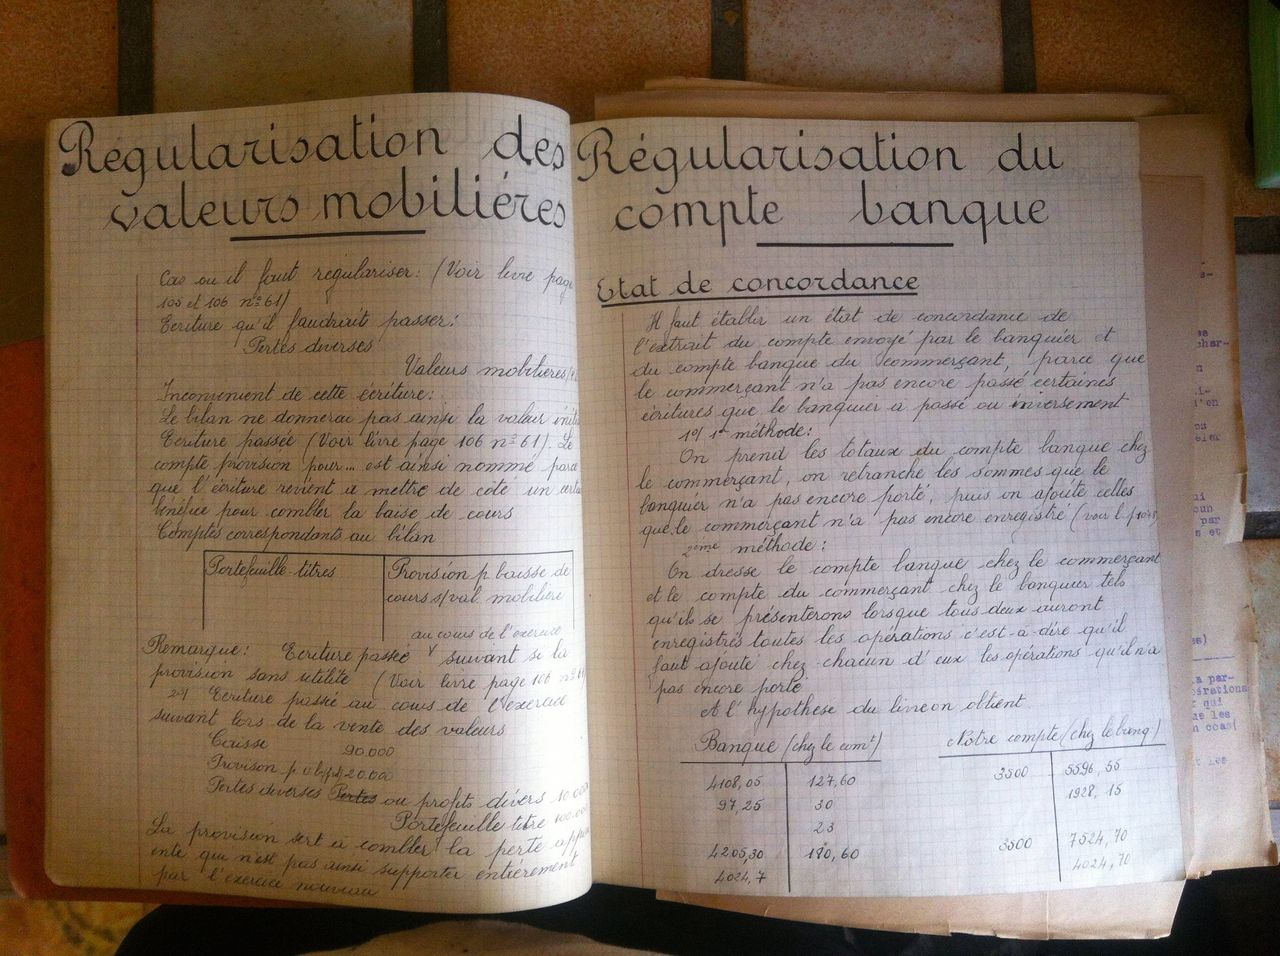 Régularisation des
valeurs mobiliéres
Cas ou il faut régulariser: (Voir livre page
105 et 106 n° 61)
Ecriture qu'il faudrait passer:
Pertes diverses
Valeurs mobilières
Inconvenient de cette écriture:
Le bilan ne donnerai pas ainsi la valeur
Ecriture passée (Voir livre page 106 n° 61). Le
compte provision pour... est ainsi nommé parce
que l'écriture revient a mettre de côté un
bénéfice pour combler la baise de cours
Comptes correspondants au bilan
Portefeuille-titres
Provision p baisse de
cours s/val. mobilière
Remarque: Ecriture passée au cours de l'exercice suivant si la
provision sans utilité (Voir livre page 106 n°
2°/ Ecriture passé au cours de l'exercice
suivant lors de la vente des valeurs
Caisse 90.000
Provison p 20.000
Pertes diverses Pertes ou profits divers
Portefeuille titre
La provision sert à combler la perte
ente qui n'est pas ainsi supporter entièrement
par l'exercice nouveau
Régularisation du
compte banque
Etat de concordance
Il faut établir un état de concordance de
l'extrait du compte envoyé par le banquier et
du compte banque du commerçant, parce que
le commerçant n'a pas encore passé certaines
écritures que le banquier a passé ou inversement
1°/ 1e méthode:
On prend les totaux du compte banque chez
le commerçant, on retranche les sommes que le
banquier n'a pas encore porté, puis on ajoute celles
que le commerçant n'a pas encore enregistré (voir l.
2ème méthode:
On dresse le compte banque chez le commerçant
et le compte du commerçant chez le banquier tels
qu'ils se présenterons lorsque tous deux auront
enregistrés toutes les opérations c'est-à-dire qu'il
faut ajouté chez chacun d'eux les opérations qu'il n'a
pas encore porté
A l'hypothèse du livre on obtient.
Banque (chez le comt)
4108,05 127,60
97,25 30
23
4205,30 180,60
4024,7
Notre compte (chez le banq)
3500 5596,55
1928,15
3500 7524,70
4024,70